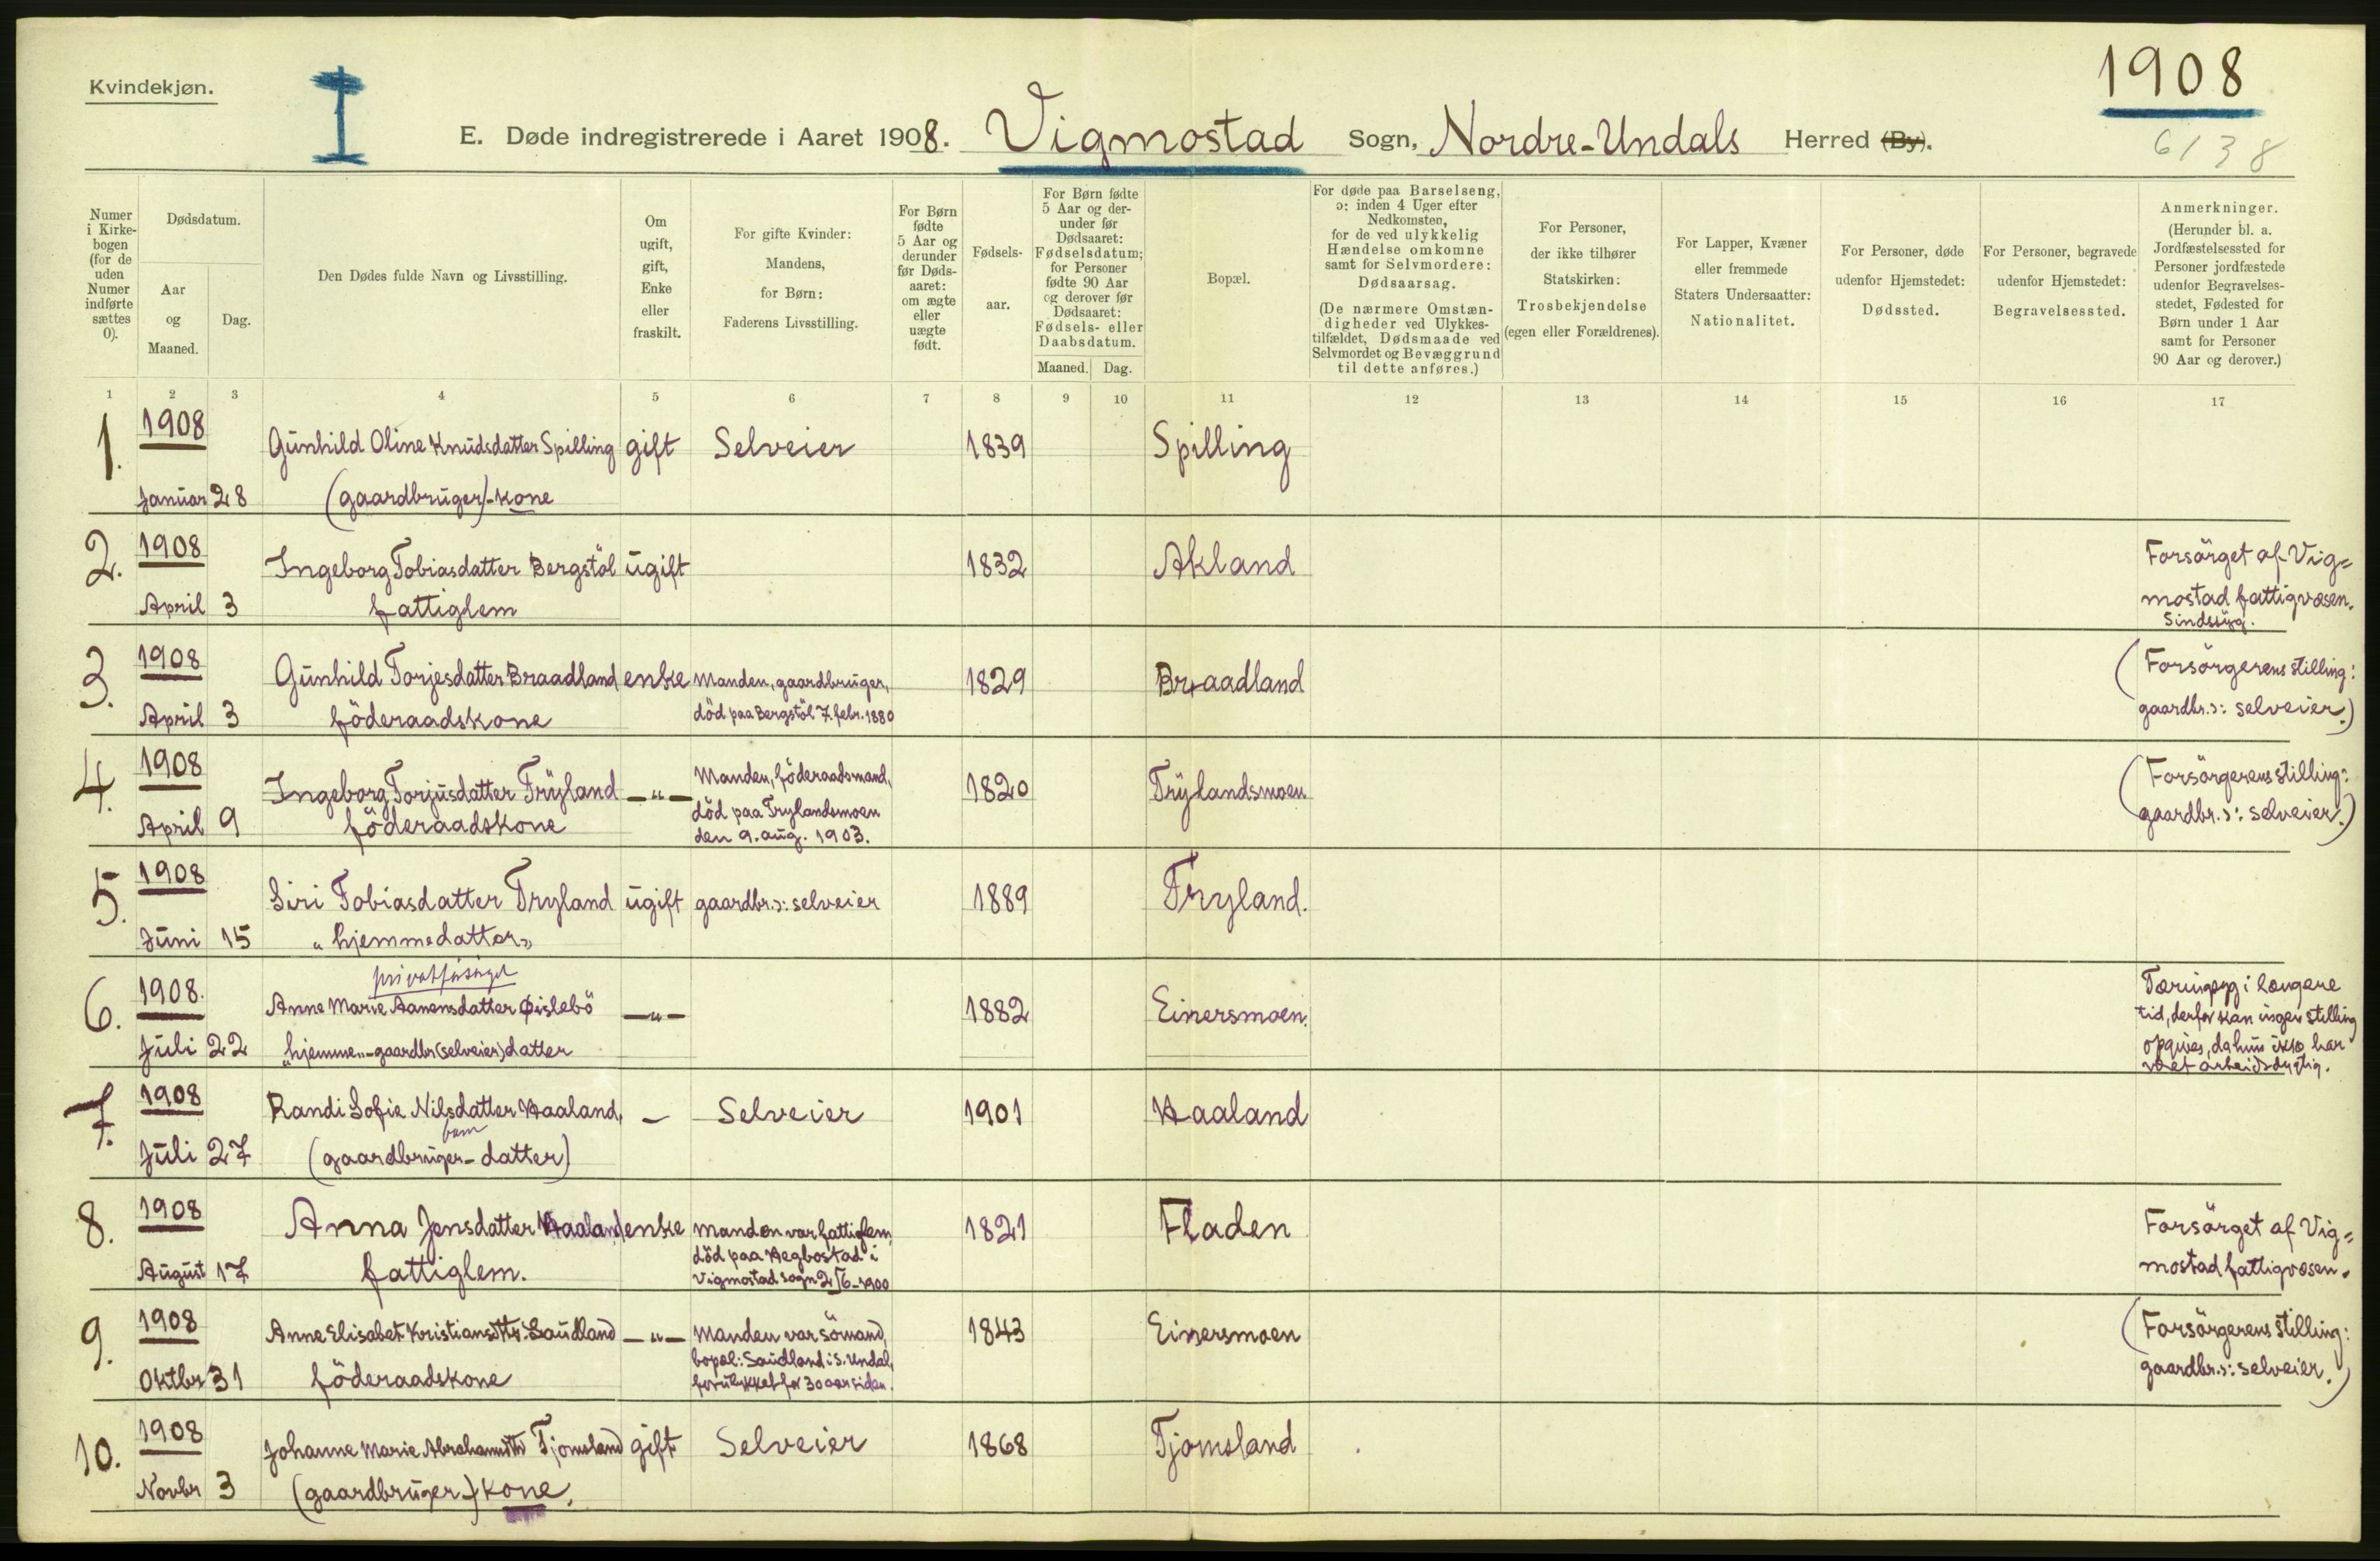 Kvindekjøn.
1908
6138
E. Døde indregistrerede i Aaret 1908. Vigmostad Sogn, Nordre-Undals Herred (By).
Numer
i Kirke-
bogen
(for de
uden
Numer
indførte
sættes
0).
Dødsdatum.
Aar
og
Maaned.
Dag.
Den Dødes fulde Navn og Livsstilling.
Om
ugift,
gift,
Enke
eller
fraskilt.
For gifte Kvinder:
Mandens,
for Børn:
Faderens Livsstilling.
For Børn
fødte
5 Aar og
derunder
før Døds-
aaret:
om ægte
eller
uægte
født.
Fødsels-
aar.
For Børn fødte
5 Aar og der-
under før
Dødsaaret:
Fødselsdatum;
for Personer
fødte 90 Aar
og derover før
Dødsaaret:
Fødsels- eller
Daabsdatum.
Maaned. Dag.
Bopæl.
For døde paa Barselseng,
ɔ: inden 4 Uger efter
Nedkomsten,
for de ved ulykkelig
Hændelse omkomne
samt for Selvmordere:
Dødsaarsag.
(De nærmere Omstæn-
digheder ved Ulykkes-
tilfældet, Dødsmaade ved
Selvmordet og Bevæggrund
til dette anføres.)
For Personer,
der ikke tilhører
Statskirken:
Trosbekjendelse
(egen eller Forældrenes).
For Lapper, Kvæner
eller fremmede
Staters Undersaatter:
Nationalitet.
For Personer, døde
udenfor Hjemstedet:
Dødssted.
For Personer, begravede
udenfor Hjemstedet:
Begravelsessted.
Anmerkninger.
(Herunder bl. a.
Jordfæstelsessted for
Personer jordfæstede
udenfor Begravelses-
stedet, Fødested for
Børn under 1 Aar
samt for Personer
90 Aar og derover.)
1 2 3 4 5 6 7 8 9 10 11 12 13 14 15 16 17
1. 1908 Gunhild Oline Knudsdatter Spilling gift Selveier 1839 Spilling
Januar 28 (gaardbruger)-kone
2. 1908 Ingeborg Tobiasdatter Bergstöl ugift 1832 Akland
April 3 fattiglem
Forsörget af Vig=
mostad fattigvæsen.
Sindssyg.
3. 1908 Gunhild Torjesdatter Braadland enke Manden, gaardbruger, 1829 Braadland
April 3 föderaadskone död paa Bergstöl 7. febr. 1880
(Forsörgerens stilling:
gaardbr. ɔ: selveier.)
4. 1908 Ingeborg Torjusdatter Tryland —„— Manden, föderaadsmand, 1820 Trylandsmoen
April 9 föderaadskone död paa Trylandsmoen
den 9. aug. 1903.
(Forsörgerens stilling:
gaardbr. ɔ: selveier.)
5. 1908 Siri Tobiasdatter Tryland ugift gaardbr. ɔ: selveier 1889 Tryland.
Juni 15 „hjemmedatter„
6. 1908. Anne Marie Aanensdatter Øislebö —„— 1882 Einersmoen.
Juli 22 „hjemme„-gaardbr(selveier)datter
Tæringsyg i længere
tid, derfor kan ingen stilling
opgives, da hun ikke har
været arbeidsdygtig.
7. 1908 Randi Sofie Nilsdatter Haaland, — Selveier 1901 Haaland
barn
Juli 27 (gaardbruger-datter)
8. 1908 Anna Jensdatter Haaland enke Manden var fattiglem, 1821 Fladen
August 17 fattiglem. död paa Hegbostad i
Vigmostad sogn 2/6-1900
Forsörget af Vig=
mostad fattigvæsen.
9. 1908 Anne Elisabet Kristiansdttr. Saudland —„— Manden var sömand, 1843 Einersmoen
Oktbr 31 föderaadskone bopæl: Saudland i S. Undal,
forulykket for 30 aar siden.
(Forsörgerens stilling:
gaardbr. ɔ: selveier.)
10. 1908 Johanne Marie Abrahamsdtr Tjomsland gift Selveier 1868 Tjomsland
Novbr 3 (gaardbruger-)kone.